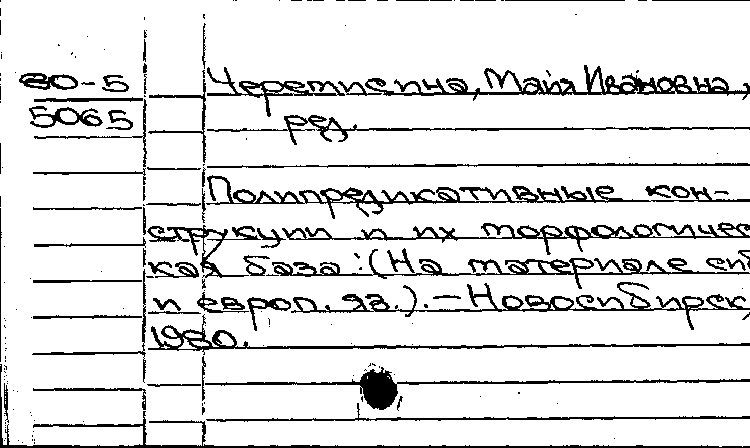 80-5 Черемисина, Майя Ивановна,
5065 ред.
Полипредикативные кон-
струкции и их морфологичес
кая база : (На материале сиб
и европ. яз.). — Новосибирск,
1980.